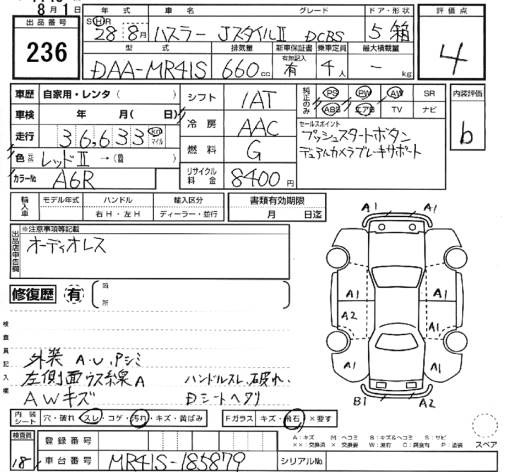 8月1日
出品番号 236
年式 車名 グレード ドア・形状 評価点
SH 28年8月 ハスラー JスタイルII DCBS 5 箱 4
型式 排気量 新車保証書 乗車定員 最大積載量
有無記入
DAA-MR41S 660cc 有 4人 - kg
車歴 自家用・レンタ( ) シフト 1AT 純正のみ PS PW AW SR 内装評価
車検 年 月( 日) ABS エアB TV ナビ b
走行 36,633 km マイル 冷房 AAC セールスポイント
プッシュスタートボタン
デュアルカメラブレーキサポート
色 レッドII →( ) 燃料 G
カラーNo A6R リサイクル料金 8400円
輸入車 モデル年式 ハンドル 輸入区分 書類有効期限
右H・左H ディーラー・並行 月 日迄
出品店申告欄 ※注意事項等記載
オーディオレス
修復歴 有 箇所
A1 A1
A1 A1
A2 A1
B1 A2
検査員記入欄
外装 A.U.Pシミ
左側面ウス線A ハンドルスレ、破れ、
AWキズ Dシートヘタリ
内装シート 穴・破れ・スレ・コゲ・汚れ・キズ・黄ばみ Fガラス キズ・飛石・×要す
検査員 登録番号 A:キズ M:ヘコミ B:キズ&ヘコミ S:サビ
スペア
18 車台番号 MR41S-185879 シリアルNo